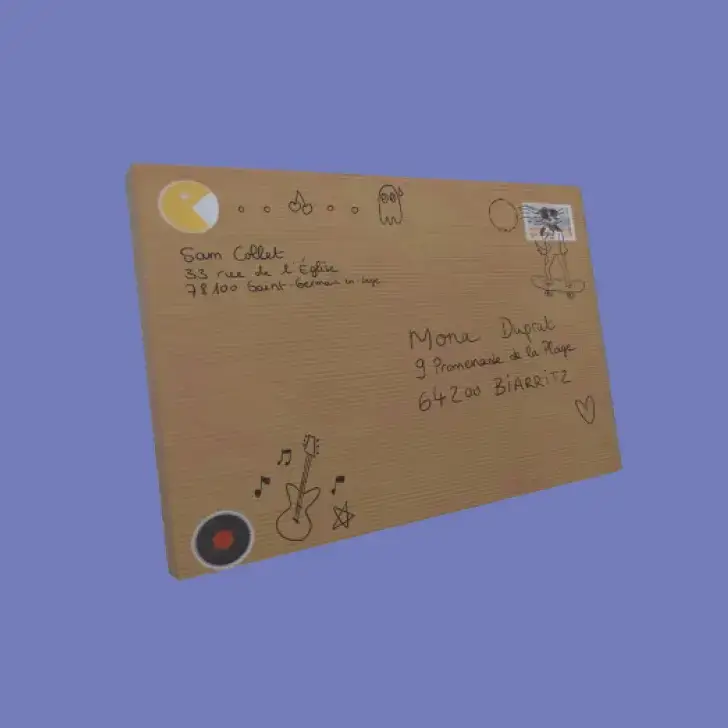 Sam Collet
33 rue de l'Église
78100 Saint-Germain-en-Laye
Mona Duprat
9 Promenade de la Plage
64200 BiARRiTZ